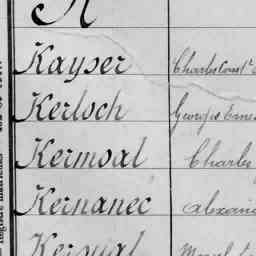 K
Kayser Charles Const
Kerloch Georges Ernes
Kermoal Charles
Kernanec Alexan